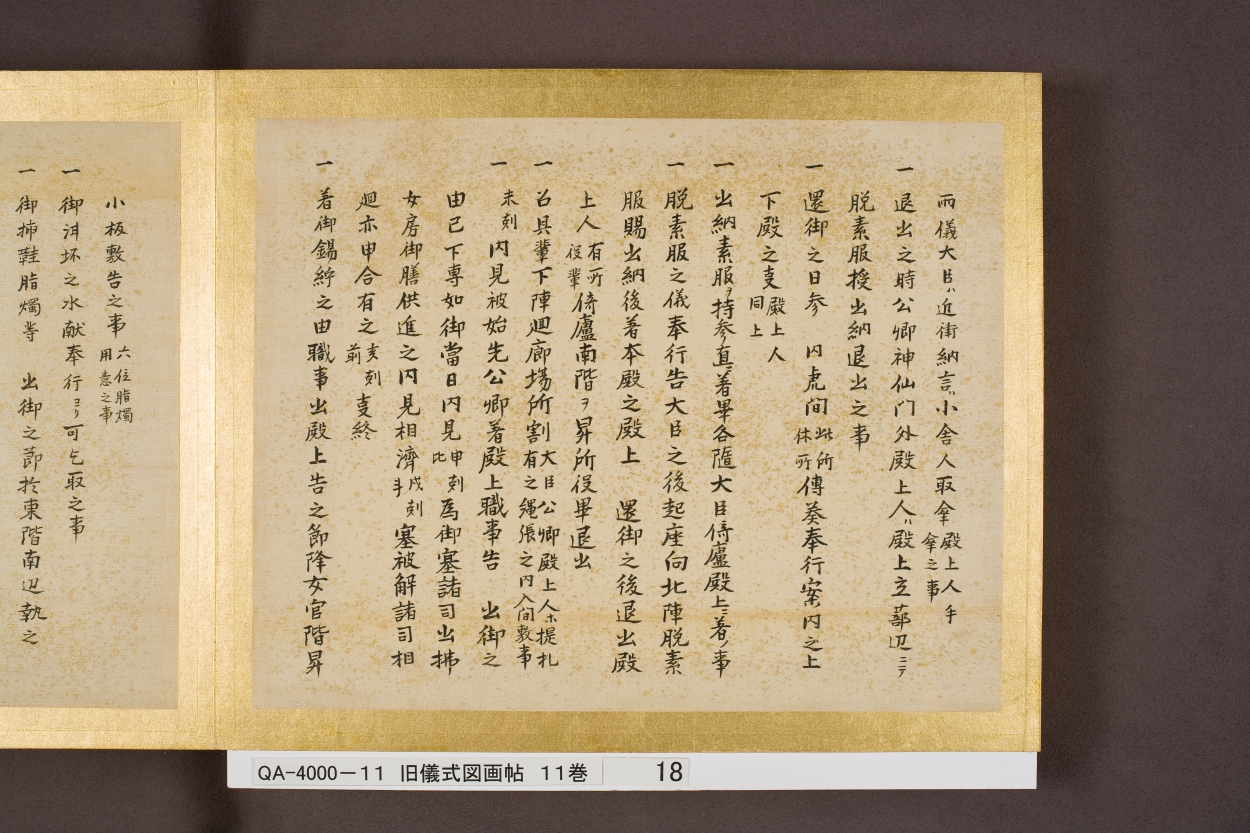 雨儀大臣ハ近衛納言ハ小舎人取傘殿上人手傘之事
一退出之時公卿神仙门外殿上人ハ殿上立蔀辺ニテ
脱素服授出納退出之事
一還御之日参　内虎間此所休所傳葵奉行案内之上
下殿之支殿上人同上
一出納素服ヲ持参直ニ著畢各隨大臣倚廬殿上ニ著ノ事
一脱素服之儀奉行告大臣之後起座向北陣脱素
服賜出納後著本殿之殿上　還御之後退出殿
上人有所役輩倚廬南階ヲ昇所役畢退出
一召具輩下陣廻廊場所割大臣公卿殿上人ホ提札有之縄張之内入間敷事
一未刻内見被始先公卿著殿上職事告　出御之
由已下専如御當日内見申刻比為御塞諸司出拂
女房御膳供進之内見相濟戌刻半塞被解諸司相
廻亦申合有之亥刻前支終
一著御錫紵之由職事出殿上告之節降女官階昇
小板敷告之事六位脂燭用意之事
一御洱坏之水献奉行ヨリ可乞取之事
一御挿鞋脂燭等　出御之節於東階南辺執之
QA-4000-11　旧儀式図画帖　11巻　18